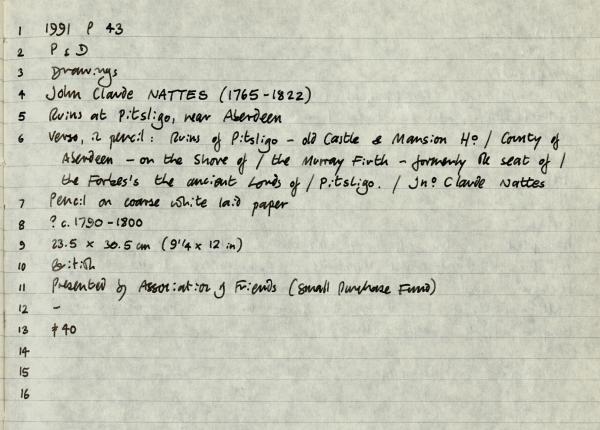 1 1991 P 43
2 P & D
3 Drawings
4 John Claude NATTES (1765-1822)
5 Ruins at Pitsligo, near Aberdeen
6 Verso, in pencil: Ruins of Pitsligo - old Castle & Mansion Ho / County of
Aberdeen - on the Shore of / the Murray Firth - formerly the seat of /
the Forbes's the ancient Lords of / Pitsligo. / Jno Claude Nattes
7 Pencil on coarse white laid paper
8 ? c. 1790-1800
9 23.5 x 30.5 cm (9 1/4 x 12 in)
10 British
11 Presented by Association of Friends (Small Purchase Fund)
12 -
13 40
14
15
16